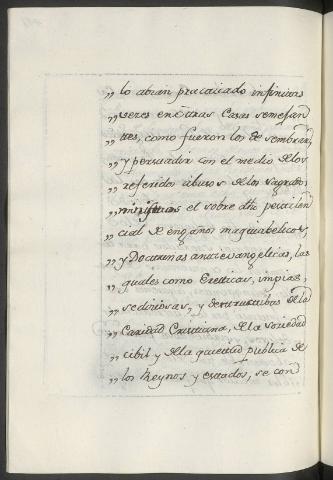 „ lo abian practicado infinitas
„ veces en otras Casas semejan
„ tes, como fueron los de sembrar,
„ y persuadir con el medio de los
„ referidos abusos de los sagrados
„ ministerios el sobre dho pestilen
„ cial de engaños maquiabelicos,
„ y Doctrinas antievangelicas, las
„ quales como Ereticas, impias,
„ sediciosas, y destructibas de la
„ Caridad Cristiana, de la sociedad
„ cibil y de la quietud publica de
„ los Reynos y estados, se con